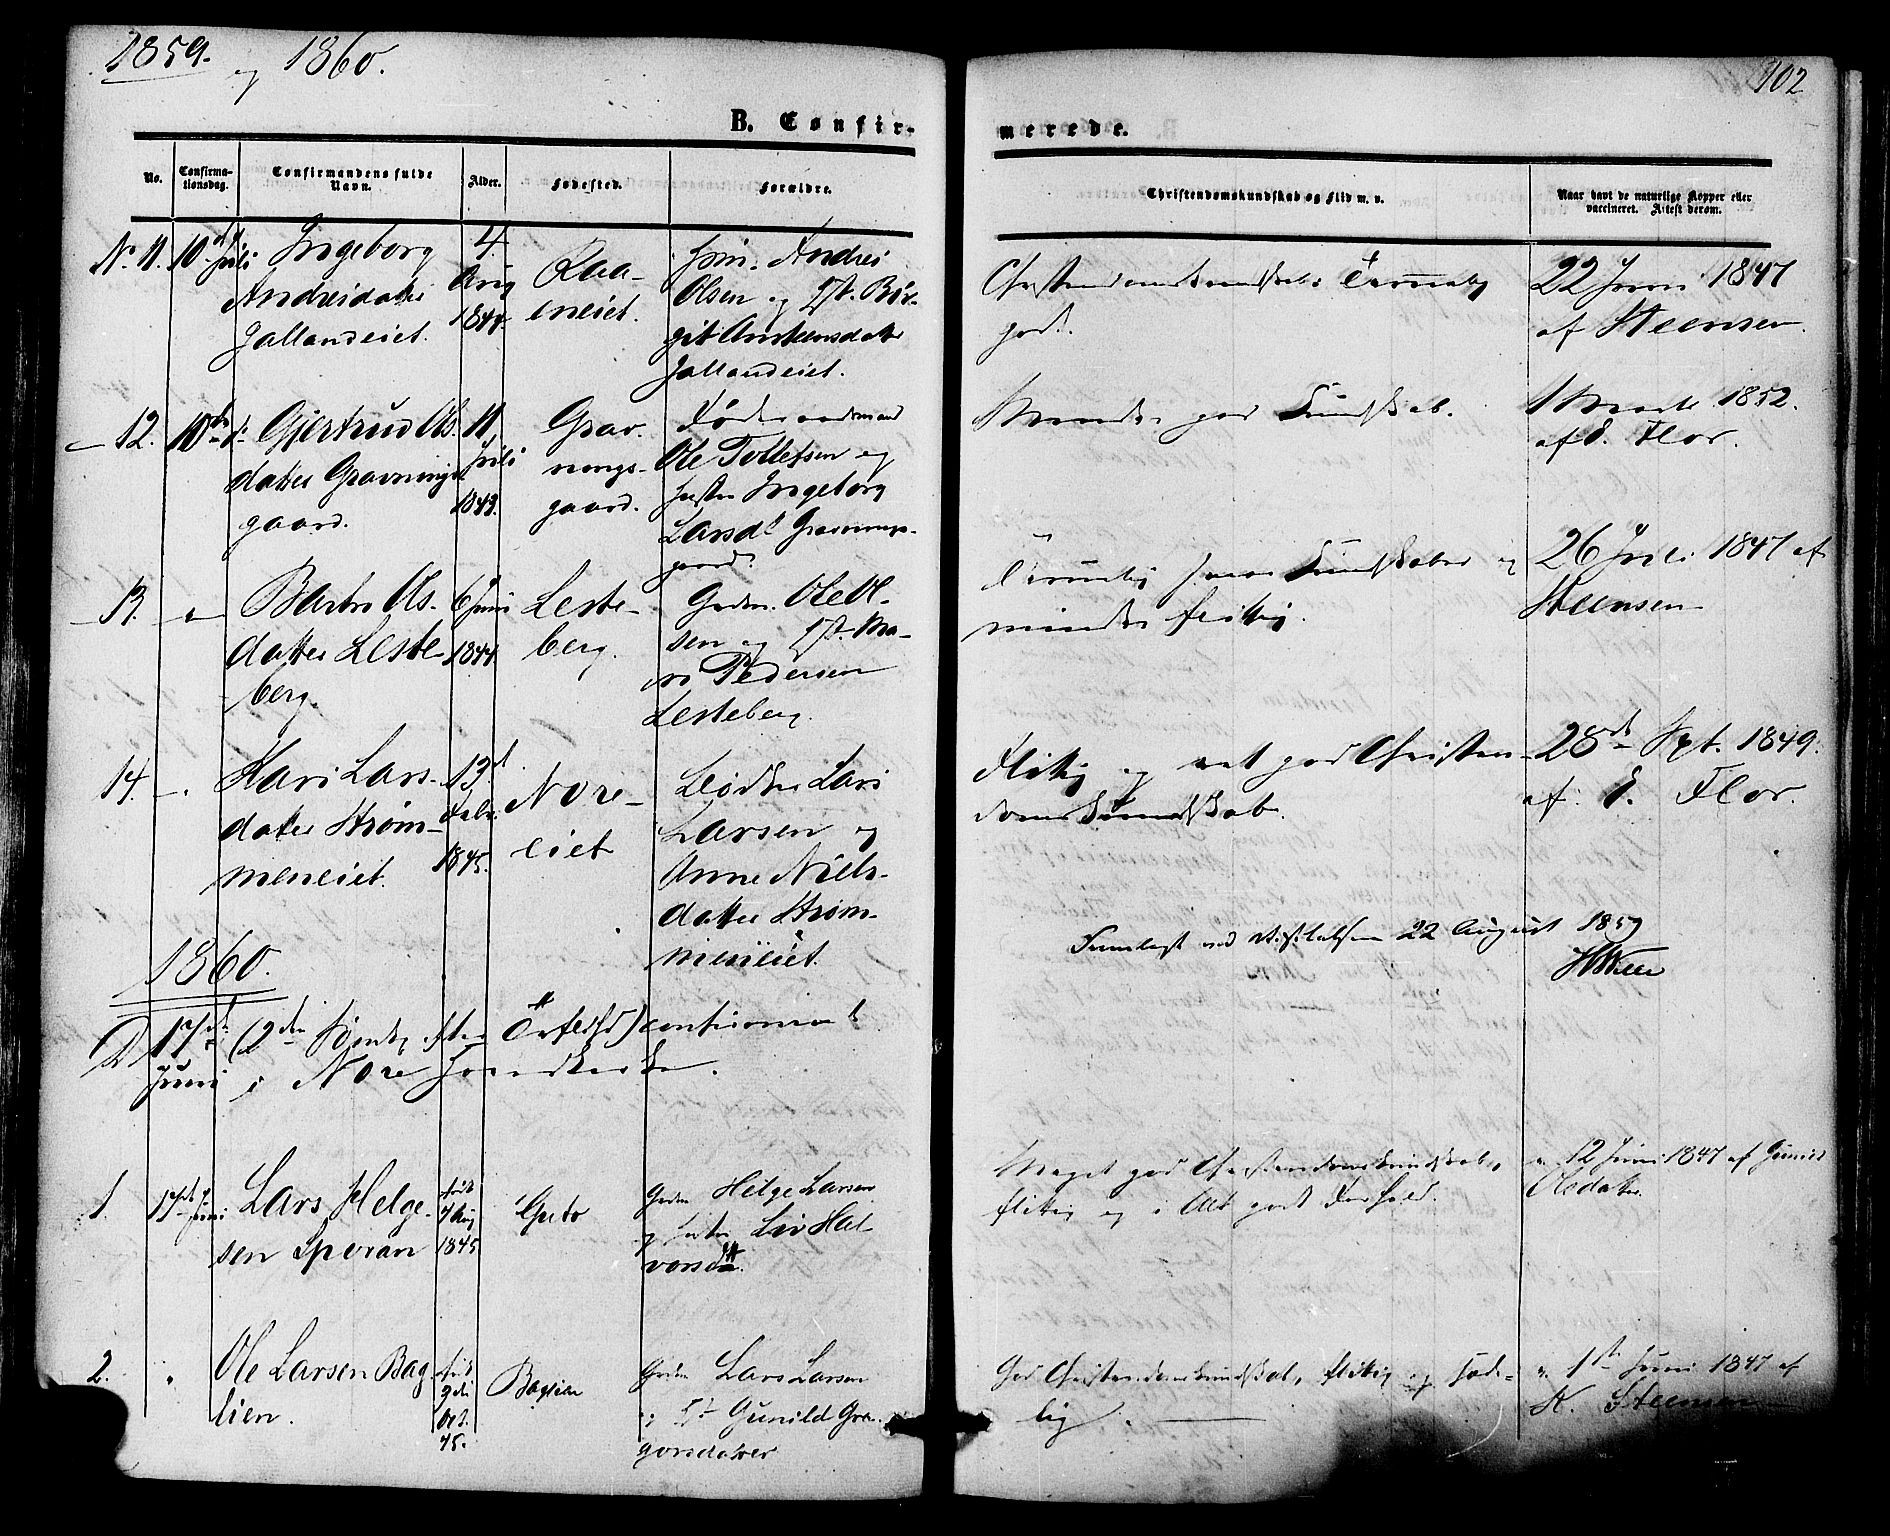 1859. og 1860.
102
B. Confir-
merede.
No.
Confirma-
tionsdag.
Confirmandens fulde
Navn.
Alder.
Fødested.
Forældre.
Christendomskundskab og Flid m. v.
Naar havt de naturlige Kopper eller
vaccineret. Attest derom.
No 11.
10de Juli
Ingeborg
Andreidatter
Jallandeiet.
4.
Aug
1844.
Raa-
eneiet.
Hm. Andrei
Olsen og Hst. Bir-
git Amundsdatter
Jallandeiet.
Christendomskundskab temmelig
god.
22 Juni 1847
af Steensen.
12.
10de
Gjertrud Ols-
datter Gravnings-
gaard.
11
Juli
1843.
Grav-
nings-
gaard.
Føderaadsmand
Ole Tollefsen og
Hustru Ingeborg
Larsdt Gravnings-
gaard.
Mindre god Kundskab.
1 Marts 1852.
af E. Flor.
13.
"
Barbro Ols-
datter Leste-
berg.
6 Juni
1844.
Leste-
berg.
Gaardm. Ole Ol-
sen og Hst. Ma-
ri Pedersen
Lesteberg.
Temmelig Kundskaber og
mindre flittig.
26 Juli 1847 af
Steensen
14.
"
Kari Lars-
datter Strøm-
meneiet.
13d
Febr.
1845.
Nore-
eiet
Lars
Larsen og
Anne Niels-
datter Strøm-
meneiet.
Flittig og ret god Christen-
domskundskab.
28de Spt. 1849.
af E. Flor.
Fremlagt ved Visitatsen 22 August 1859
1860.
D. 17de Juni (2den Søndag efter Trefold) confirmeret
i Nore Hovedkirke.
1.
17de Juni
Lars Helge-
sen Sporan
født
7 Aug
1845
Gaardm. Helge Larsen
og Hustru Liv Hal-
vorsdtt.
Meget god Christendomskundskab,
flittig og i Alt godt Forhold.
" 12 Juni 1847 af Gunild
Olsdatter.
2.
"
Ole Larsen Bag-
lien.
født
9de
Oct.
45.
Baglien
Gaardm. Lars Larsen
og Hst Gunild Gre-
gorsdatter
God Christendomskundskab, flittig og sæde-
lig.
" 1ste Juni 1847 af
K. Steensen